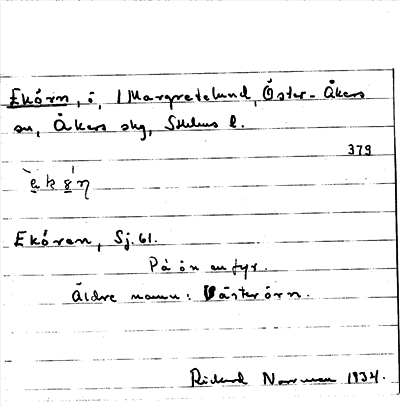 Ekörn, ö, i Margretelund, Öster-Åkers
sn, Åkers skg, Sthlms l.
379
Ekören, Sj. 61.
På ön en fyr.
Äldre namn: Västerörn.
Rickard Norrman 1934.